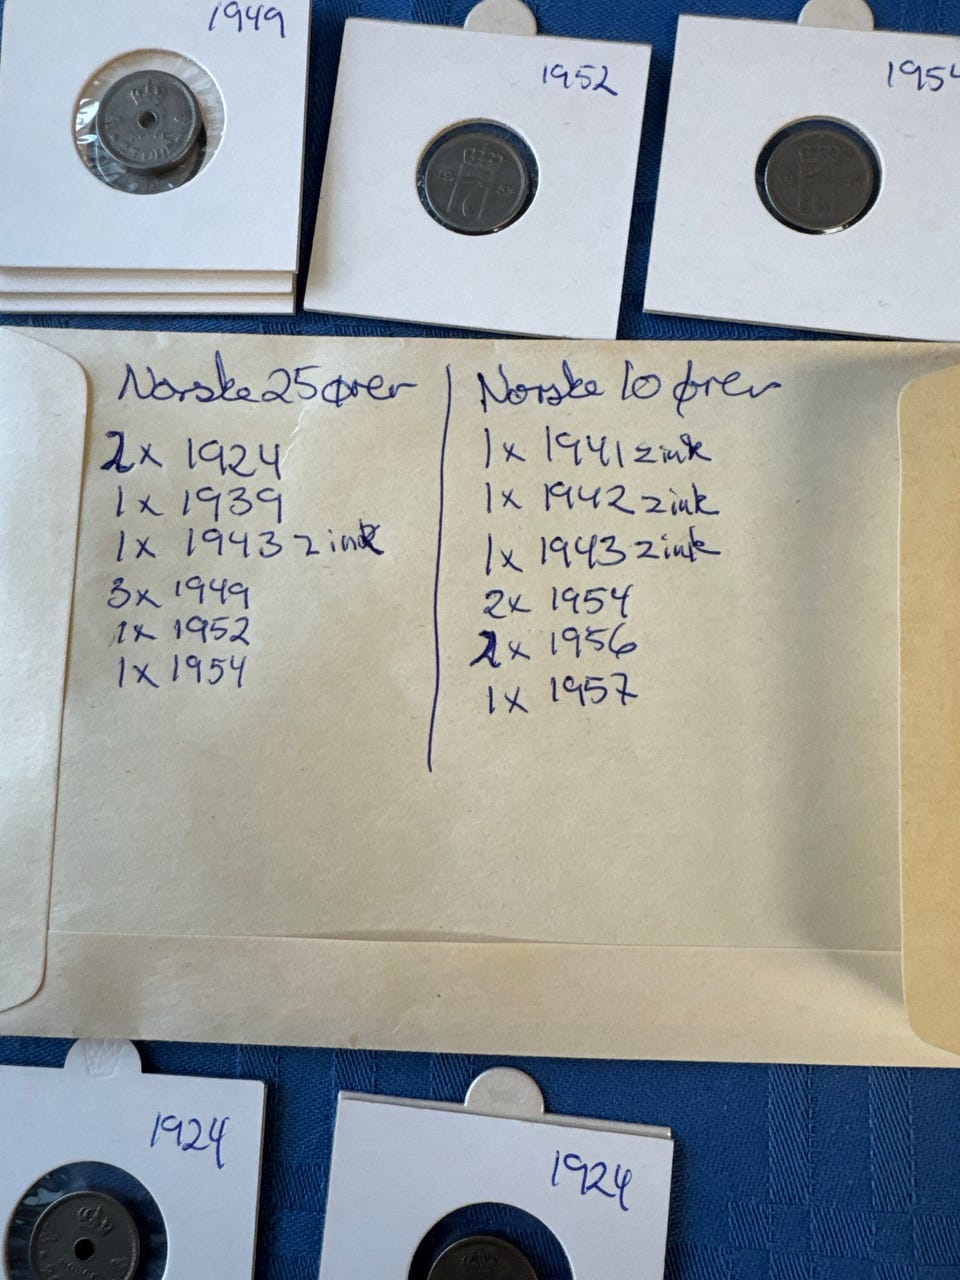 1949
1952
1954
Norske 25 ører
2x 1924
1x 1939
1x 1943 zink
3x 1949
1x 1952
1x 1954
Norske 10 ører
1x 1941 zink
1x 1942 zink
1x 1943 zink
2x 1954
2x 1956
1x 1957
1924
1924